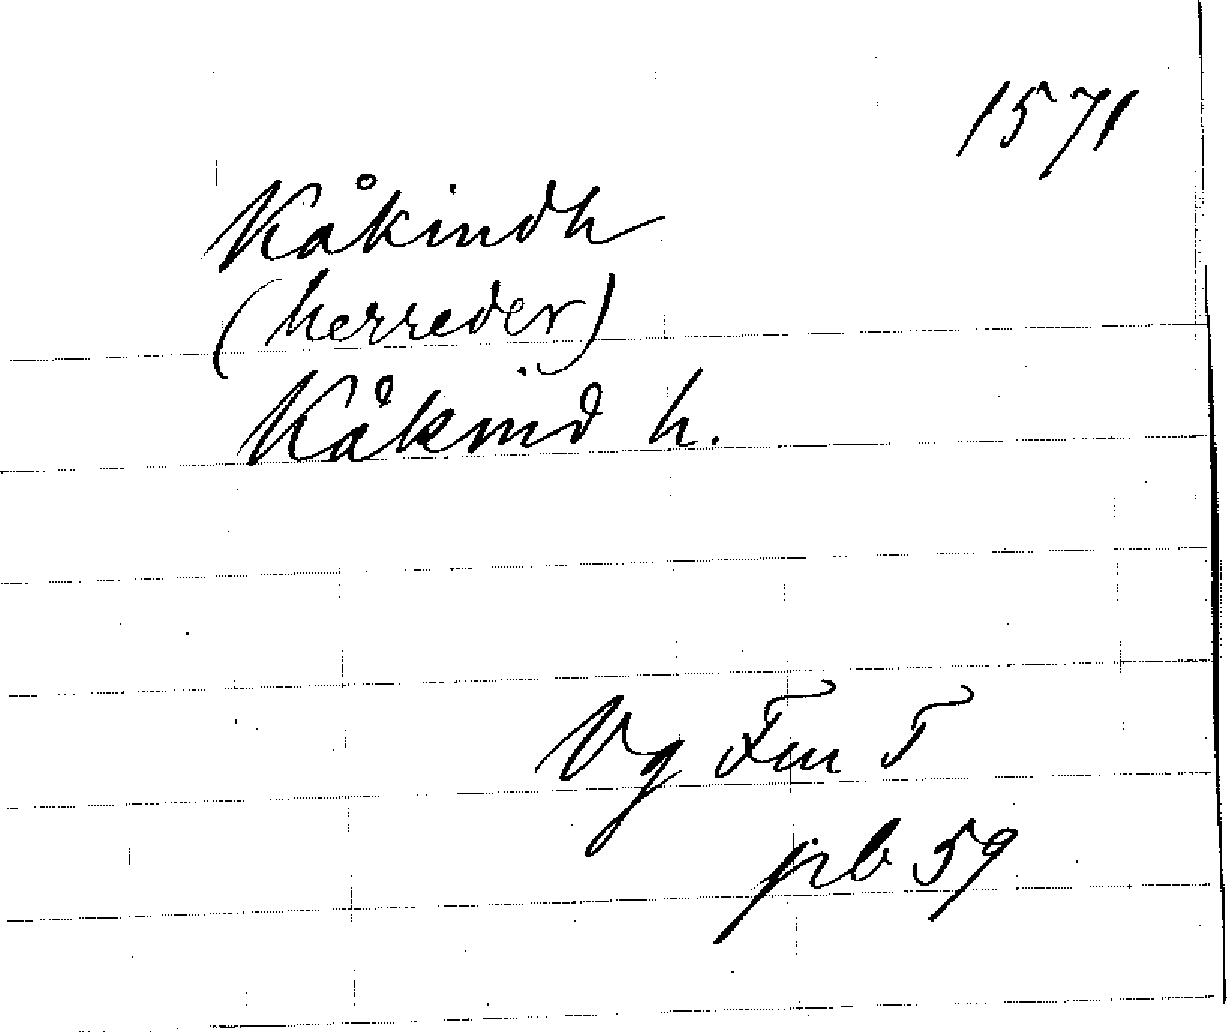 1571
Kåkindh
(herreder)
Kåkind h.
Vg Fm T
pb 59